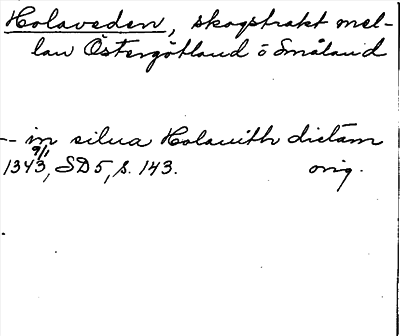 Holaveden, skogstrakt mel-
lan Östergötland o Småland
-- in silua Holauith dictam
9/1
1343, SD5, s. 143. orig.